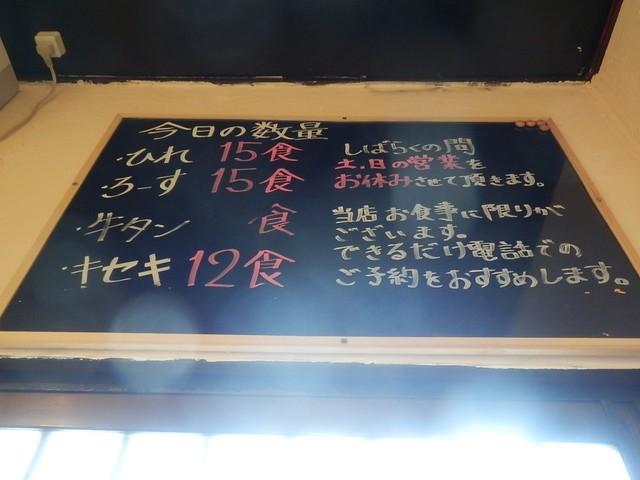 今日の数量
・ひれ 15食
・ろーす 15食
・牛タン ・食
・キセキ 12食
しばらくの間
土.日の営業を
お休みさせて頂きます。
当店お食事に限りが
ございます。
できるだけ電話での
ご予約をおすすめします。